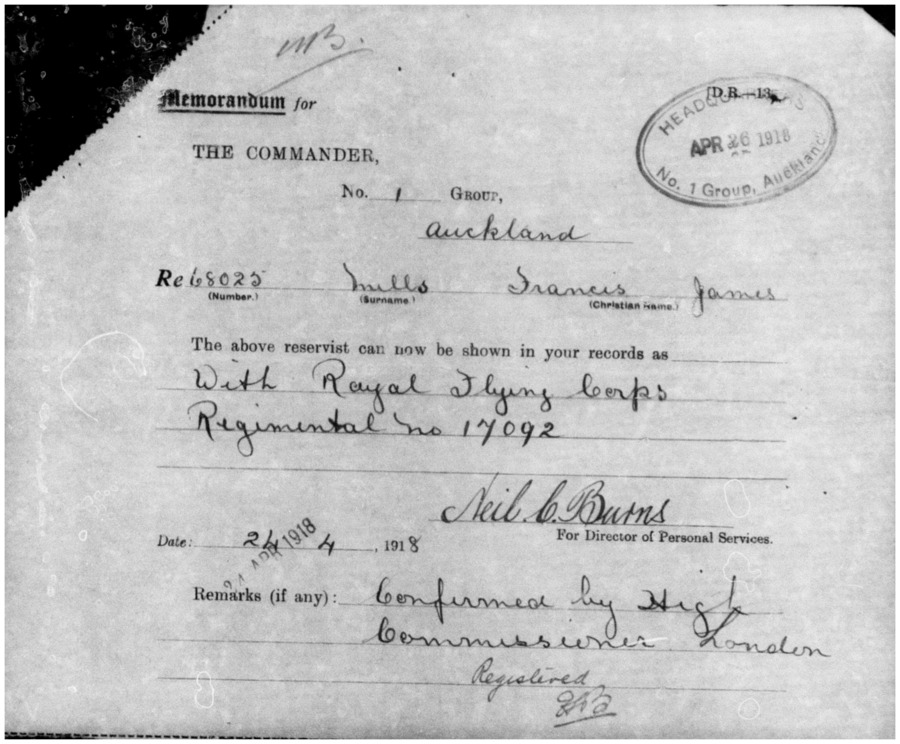 MB.
[D.B.—13.
Memorandum for
HEADQUARTERS
APR 26 1918
No. 1 Group, Auckland
THE COMMANDER,
No. 1 GROUP,
Auckland
Re 68025 Mills Francis James
(Number.) (Surname.) (Christian Name.)
The above reservist can now be shown in your records as
With Royal Flying Corps
Regimental No 17092
Neil C. Burns
For Director of Personal Services.
Date: 24 4, 1918
24 APR 1918
Remarks (if any): Confirmed by High
Commissioner London
Registered